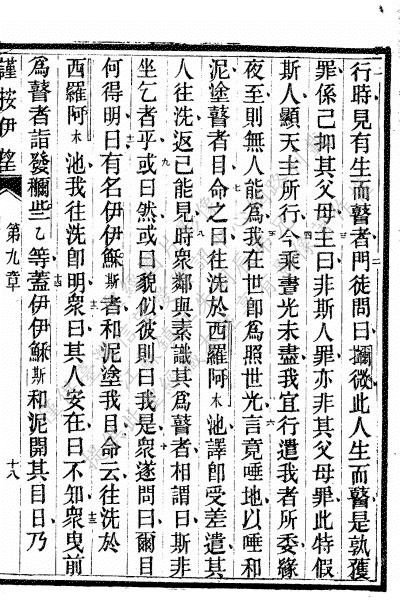 行時見有生而瞽者門徒問曰微此人生而瞽是孰獲
罪係己抑其父母主曰非斯人罪亦非其父母罪此特假
斯人顯天主所行今乘晝光未盡我宜行遣我者所委緣
夜至則無人能為我在世即為照世光言竟唾地以唾和
泥塗瞽者目命之曰往洗於西羅阿木池譯即受差遣其
人往洗返已能見時衆鄰與素識其為瞽者相謂曰斯非
坐乞者乎或曰然或曰貌似彼則曰我是衆遂問曰爾目
何得明曰有名伊伊穌斯者和泥塗我目命云往洗於
西羅阿木池我往洗即明衆曰其人安在曰不知衆曳前
為瞽者詣發禰些乙等蓋伊伊穌斯和泥開其目日乃
謹按伊望
第九章
十八